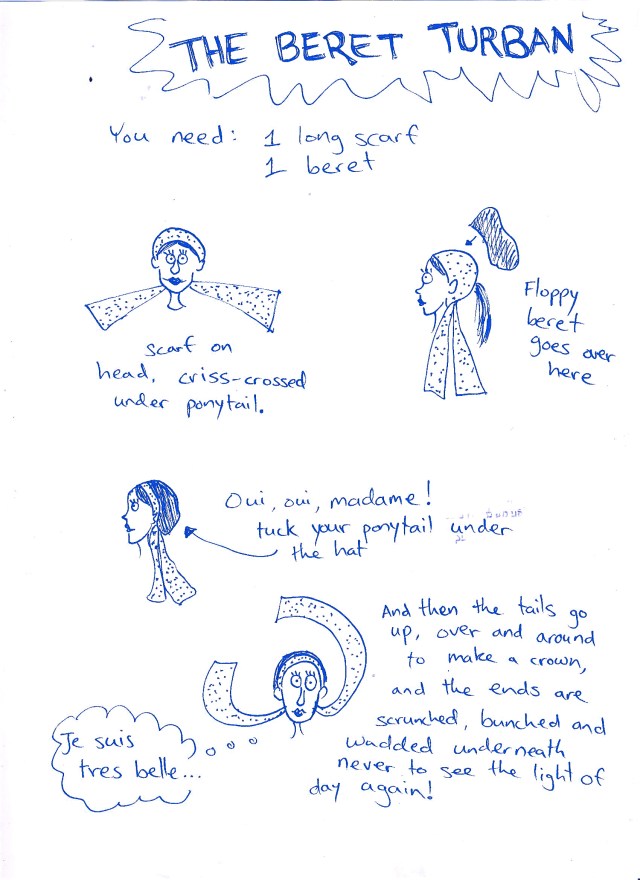 THE BERET TURBAN
You need: 1 long scarf
1 beret
scarf on
head, criss-crossed
under ponytail.
Floppy
beret
goes over
here
Oui, oui, madame!
tuck your ponytail under
the hat
And then the tails go
up, over and around
to make a crown,
and the ends are
scrunched, bunched and
wadded underneath
never to see the light of
day again!
Je suis
tres belle...